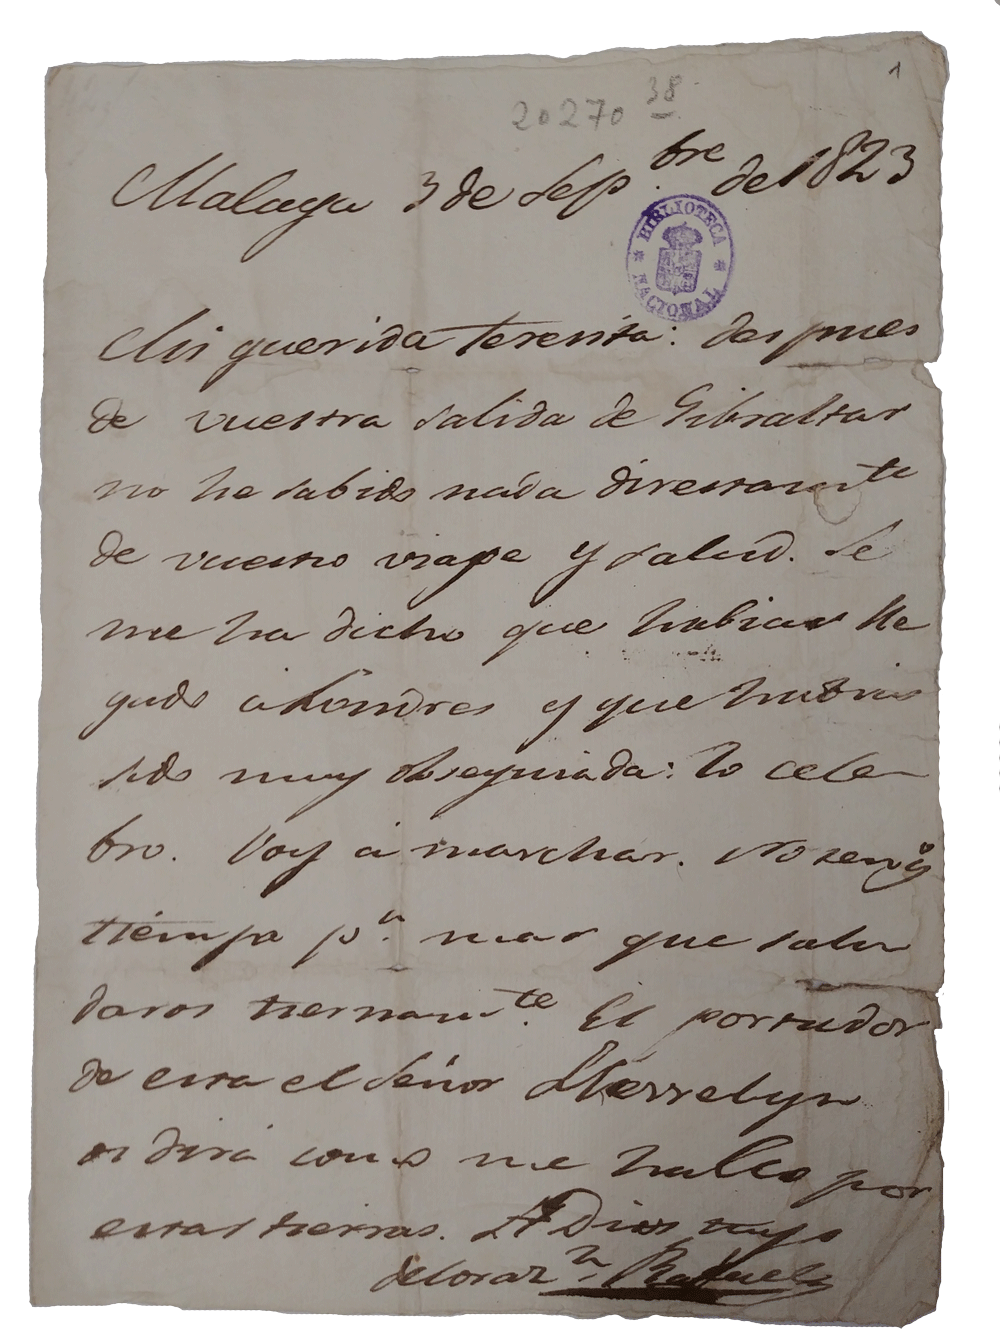 1
20270 38
Malaga 3 de Sep.bre de 1823
BIBLIOTECA NACIONAL
Mi querida Teresita: despues
de vuestra salida de Gibraltar
no he sabido nada directamte
de vuestro viage y salud. Se
me ha dicho que habias lle
gado á Londres y que habias
sido muy obsequiada: lo cele
bro. Voy á marchar. No tengo
tiempo pa. mas que salu
daros tiernamte. El portador
de esta el Señor
os dirá como me hallo por
estas tierras. A Dios tuyo
de corazn. Rafael